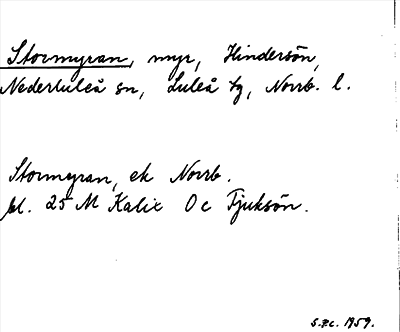 Stormyran, myr, Hindersön,
Nederluleå sn, Luleå tg, Norrb. l.
Stormyran, ek Norrb.
bl. 25 M Kalix Oc Fjuksön.
S.P.C. 1959.